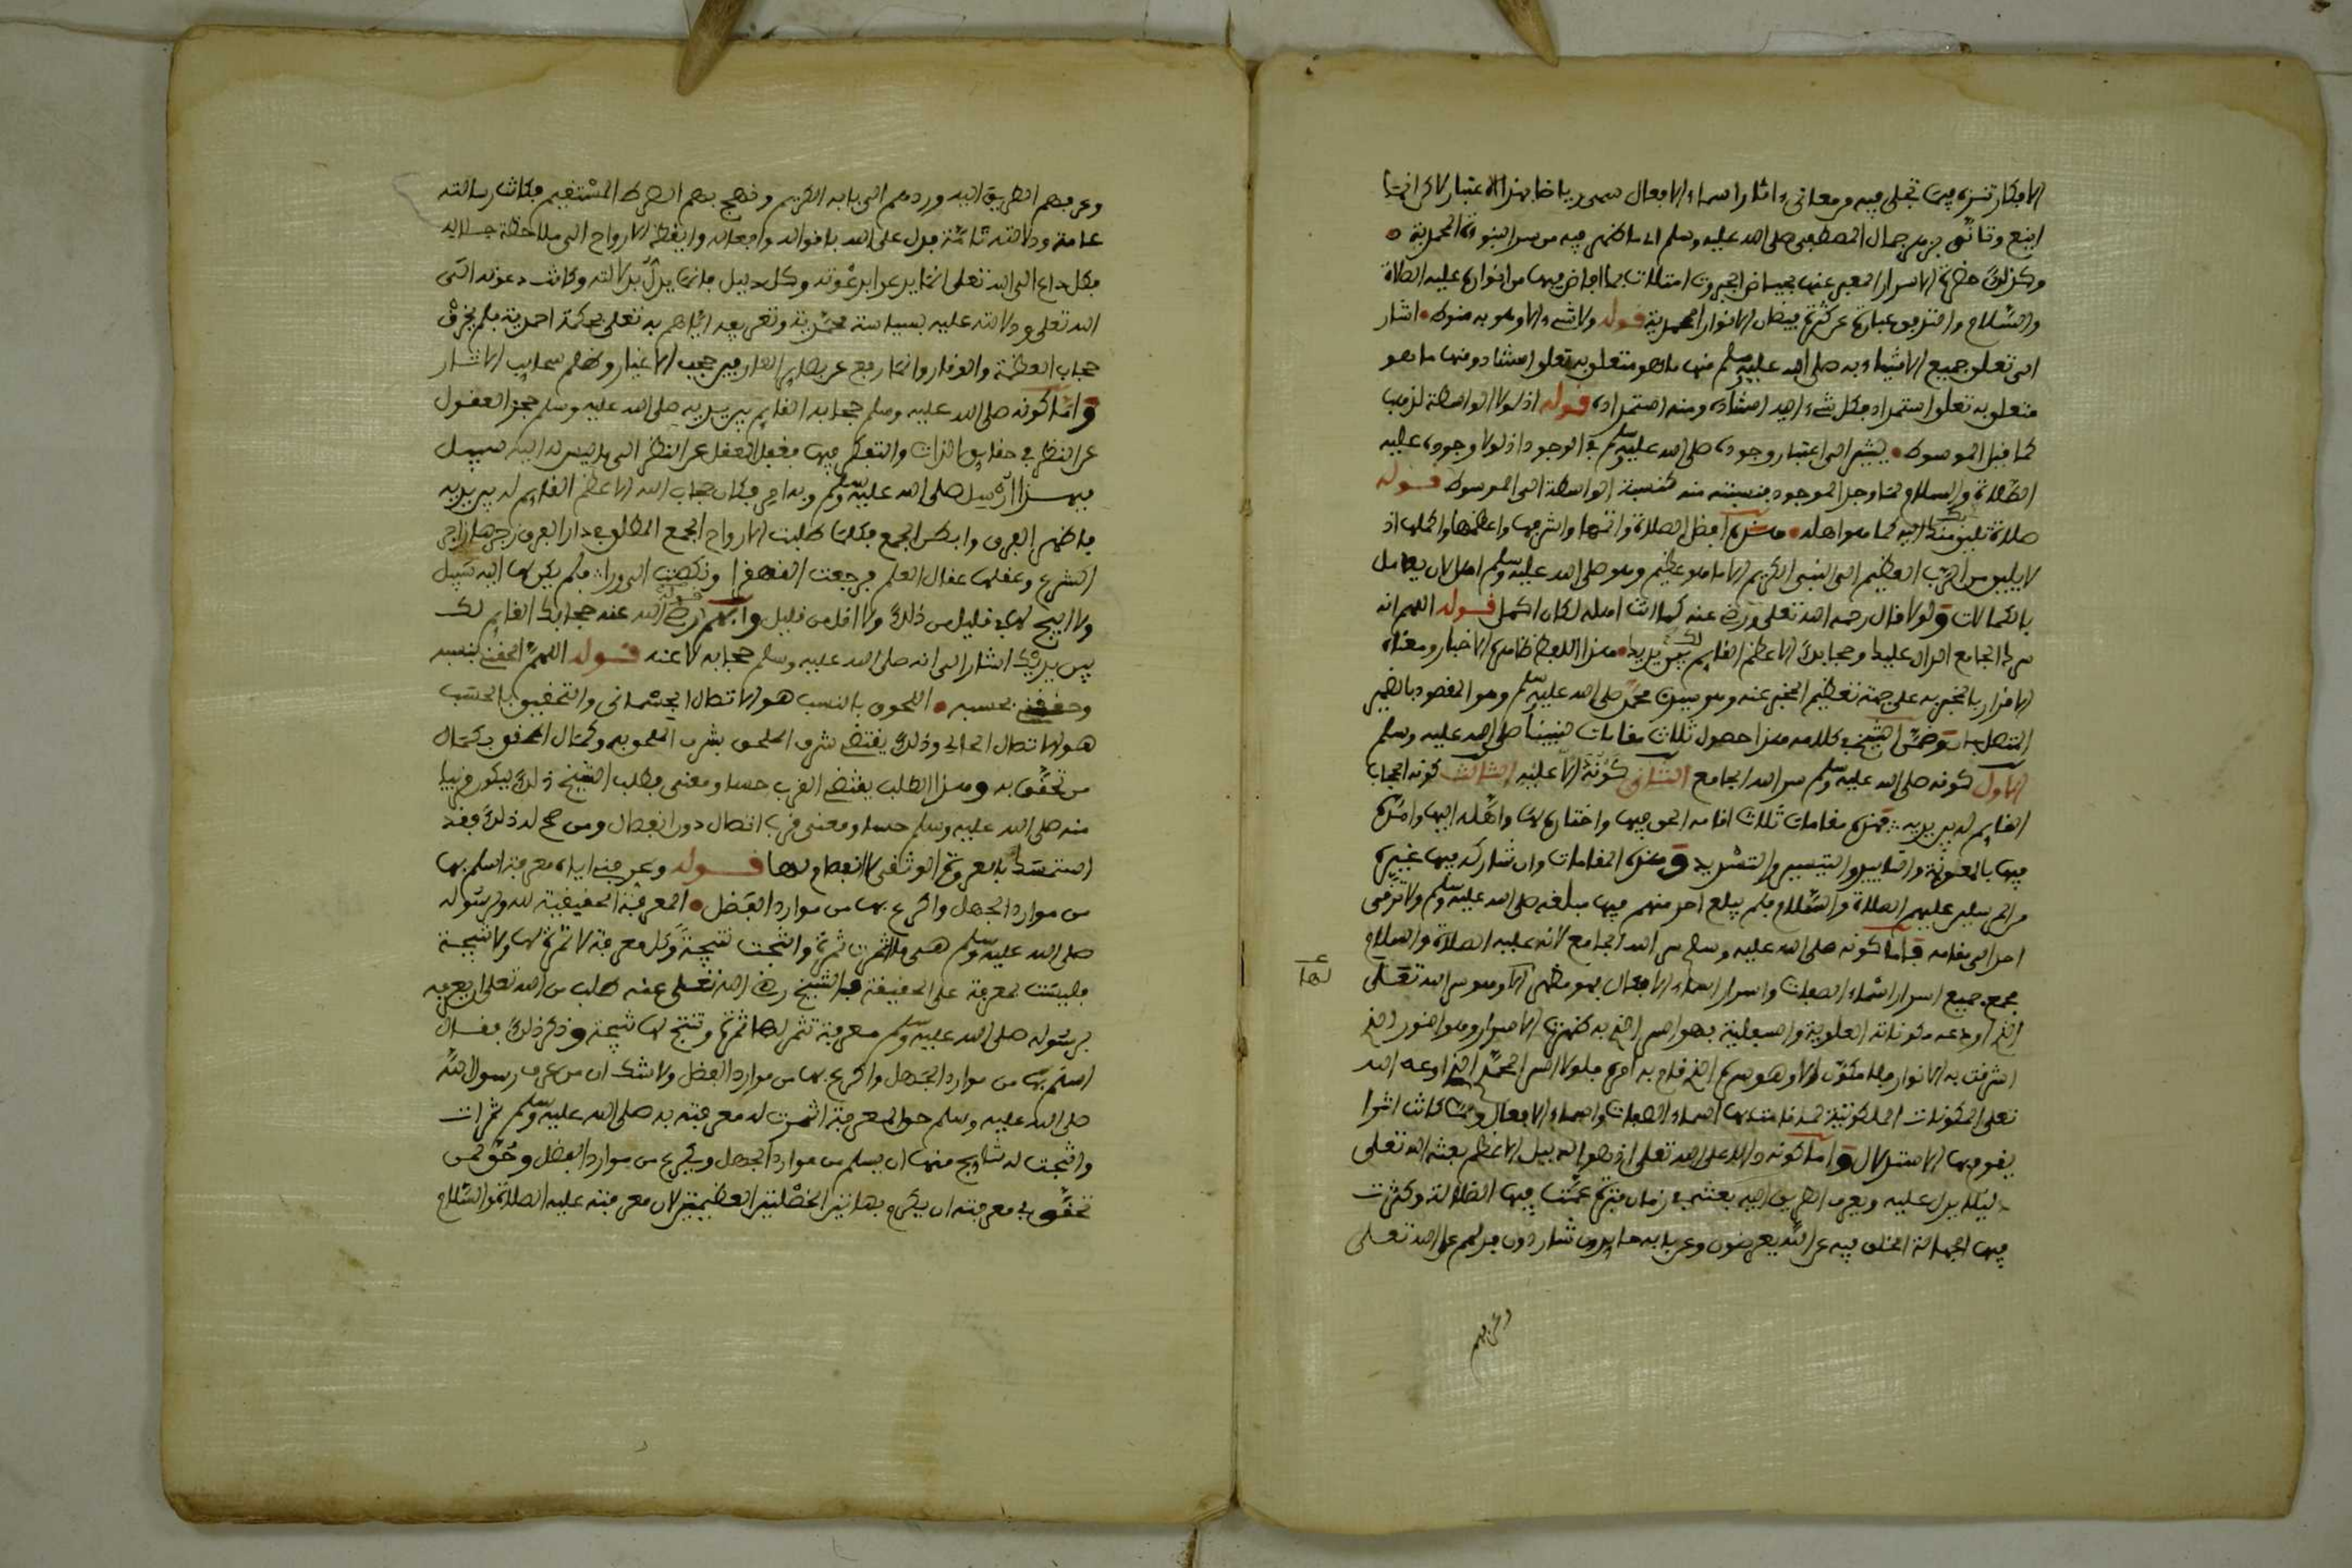 الافكار تنزه فيما تجلى فيه من معانى اثار اسماء الافعال سمى رياضا بهذا الاعتبار لاكن انما
اينع وتانق بزهر جمال المصطفى صلى الله عليه وسلم اى ما ظهر فيه من سر النبوءة المحمدية
وكذلك حضرة الاسرار المعبر عنها بحياض الجبروت امتلات بما افاض فيها من انواره عليه الصلاة
والسلام واختربى عبارة عن كثرة فيضان الانوار المحمدية قوله ولا شىء الا وهو به منوط اشار
الى تعلق جميع الاشياء به صلى الله عليه وسلم منها ما هو متعلق به تعلق استناد ومنها ما هو
متعلق به تعلق استمداد فكل شىء اليه استناده ومنه استمداده قوله اذ لولا الواسطة لذهب
كما قيل الموسوط يشير الى اعتبار وجوده صلى الله عليه وسلم فى الوجود اذ لولا وجوده عليه
الصلاة والسلام لما وجد الموجود فنسبته منه كنسبة الواسطة الى الموسوط قوله
صلاة تليق بك منك اليه كما هو اهله هذه افضل الصلاة واتمها واشرفها واعظمها واكملها اذ
لا يليق من الرب العظيم الى النبى الكريم الا ما هو عظيم وهو صلى الله عليه وسلم اهل لان يعامل
بالكمالات ولو قال رحمه الله تعلى ورضى عنه كما انت اهله لكان اكمل قوله اللهم انه
سرك الجامع الدال عليك وحجابك الاعظم القايم لك بين يديك هذا اللفظ ظاهره الاخبار ومعناه
الاقرار بالمخبر به على جهة تعظيم المخبر عنه وهو سيدنا محمد صلى الله عليه وسلم وهو المقصود بالضمير
المتصل بان وضمن الشيخ فى كلامه هذا حصول ثلاث مقامات لنبينا صلى الله عليه وسلم
الاول كونه صلى الله عليه وسلم سر الله الجامع الثانى كونه دالا عليه الثالث كونه الحجاب
القايم له بين يديه فهذه مقامات ثلاث اقامه الحق فيها واختاره لها واهله اليها وامده
فيها بالمعونة والتاييد والتيسير والتسديد وهذه المقامات وان شاركه فيها غيره
من المرسلين عليهم الصلاة والسلام فلم يبلغ احد منهم فيها مبلغه صلى الله عليه وسلم ولا ترقى
احد الى مقامه فاما كونه صلى الله عليه وسلم سر الله الجامع لانه عليه الصلاة والسلام
مجمع جميع اسرار اسماء الصفات واسرار اسماء الافعال فهو مظهر لها وهو سر الله تعلى
لها
الذى اودعه مكوناته العلوية والسفلية فهو السر الذى به ظهرت الاسرار وهو النور الذى
اشرقت به الانوار فلا مكون الا وهو سره الذى قام به امره فلولا السر المحمدى الذى اودعه الله
تعلى المكونات الملكوتية لما قامت بها اسماء الصفات واسماء الافعال ولما كانت اثرا
يقوم بها الاستدلال واما كونه دالا على الله تعلى اذ هو الدليل الاعظم بعثه الله تعلى
دليلا يدل عليه ويعرف الطريق اليه بعثه فى زمان فترة عمت فيها الضلالة وكثرت
فيها الجهالة الخلق فيه عن الله معرضون وعن بابه حايدون شاردون فدلهم على الله تعلى
وعرفهم
وعرفهم الطريق اليه وردهم الى بابه الكريم ونهج بهم الصراط المستقيم فكانت رسالته
عامة ودلالته تامة فدل على الله باقواله وافعاله وايقظ الارواح الى ملاحظة جلاله
فكل داع الى الله تعلى انما يدعو بدعوته وكل دليل فانما يدل بدلالته وكانت دعوته الى
الله تعلى ودلالته عليه بسياسة محمدية وتعريفه اياهم به تعلى بحكمة احمدية فلم يخرق
حجاب العظمة والوقار وانما رفع عن بصاير العارفين حجب الاغيار وقطع سحايب الاثار
واما كونه صلى الله عليه وسلم حجابه القايم بين يديه صلى الله عليه وسلم حجز العقول
عن النظر فى حقايق الذات والتفكر فيها فعقل العقل عن النظر الى ما ليس له اليه سبيل
بهذا ارسل صلى الله عليه وسلم وبه امر فكان حجاب الله الاعظم القايم له بين يديه
فاظهر الفرق وابطن الجمع فكلما طلبت الارواح الجمع المطلق فى دار الفرق زجرها زاجر
الشرع وعقلها عقال العلم فرجعت القهقرا ونكصت الى ورا فلم يكن لها اليه سبيل
ولا ابيح لها قليل من ذلك ولا اقل من قليل وافهم قوله رضى الله عنه حجابك القايم لك
بين يديك اشار الى انه صلى الله عليه وسلم حجاب له لا عنه قوله اللهم الحقنى بنسبه
وحققنى بحسبه اللحوق بالنسب هو الاتصال الجثمانى والتحقيق بالحسب
هو الاتصال الحالى وذلك يقتضى شرف الملحق بشرف الملحق به وكمال المحقق بكمال
من تحقق به وهذا الطلب يقتضى القرب حسا ومعنى فطلب الشيخ ذلك ليكون قريبا
منه صلى الله عليه وسلم حسا ومعنى قرب اتصال دون انفصال ومن صح له ذلك فقد
استمسك بالعروة الوثقى لا انفصام لها قوله وعرفنى اياه معرفة اسلم بها
من موارد الجهل واكرع بها من موارد الفضل المعرفة الحقيقية لله ولرسوله
صلى الله عليه وسلم هى ما اثمرت ثمرة وانتجت نتيجة وكل معرفة لا ثمرة لها ولا نتيجة
فليست بمعرفة على الحقيقة فالشيخ رضى الله تعلى عنه طلب من الله تعلى ان يعرفه
برسوله صلى الله عليه وسلم معرفة تثمر لها ثمرة وتنتج لها نتيجة وذكر ذلك فقال
اسلم بها من موارد الجهل واكرع بها من موارد الفضل ولا شك ان من عرف رسول الله
صلى الله عليه وسلم حق المعرفة اثمرت له معرفته به صلى الله عليه وسلم ثمرات
وانتجت له نتايج منها ان يسلم من موارد الجهل ويكرع من موارد الفضل وحق لمن
تحقق فى معرفته ان يكرم بهاتين الخصلتين العظيمتين لان معرفته عليه الصلاة والسلام